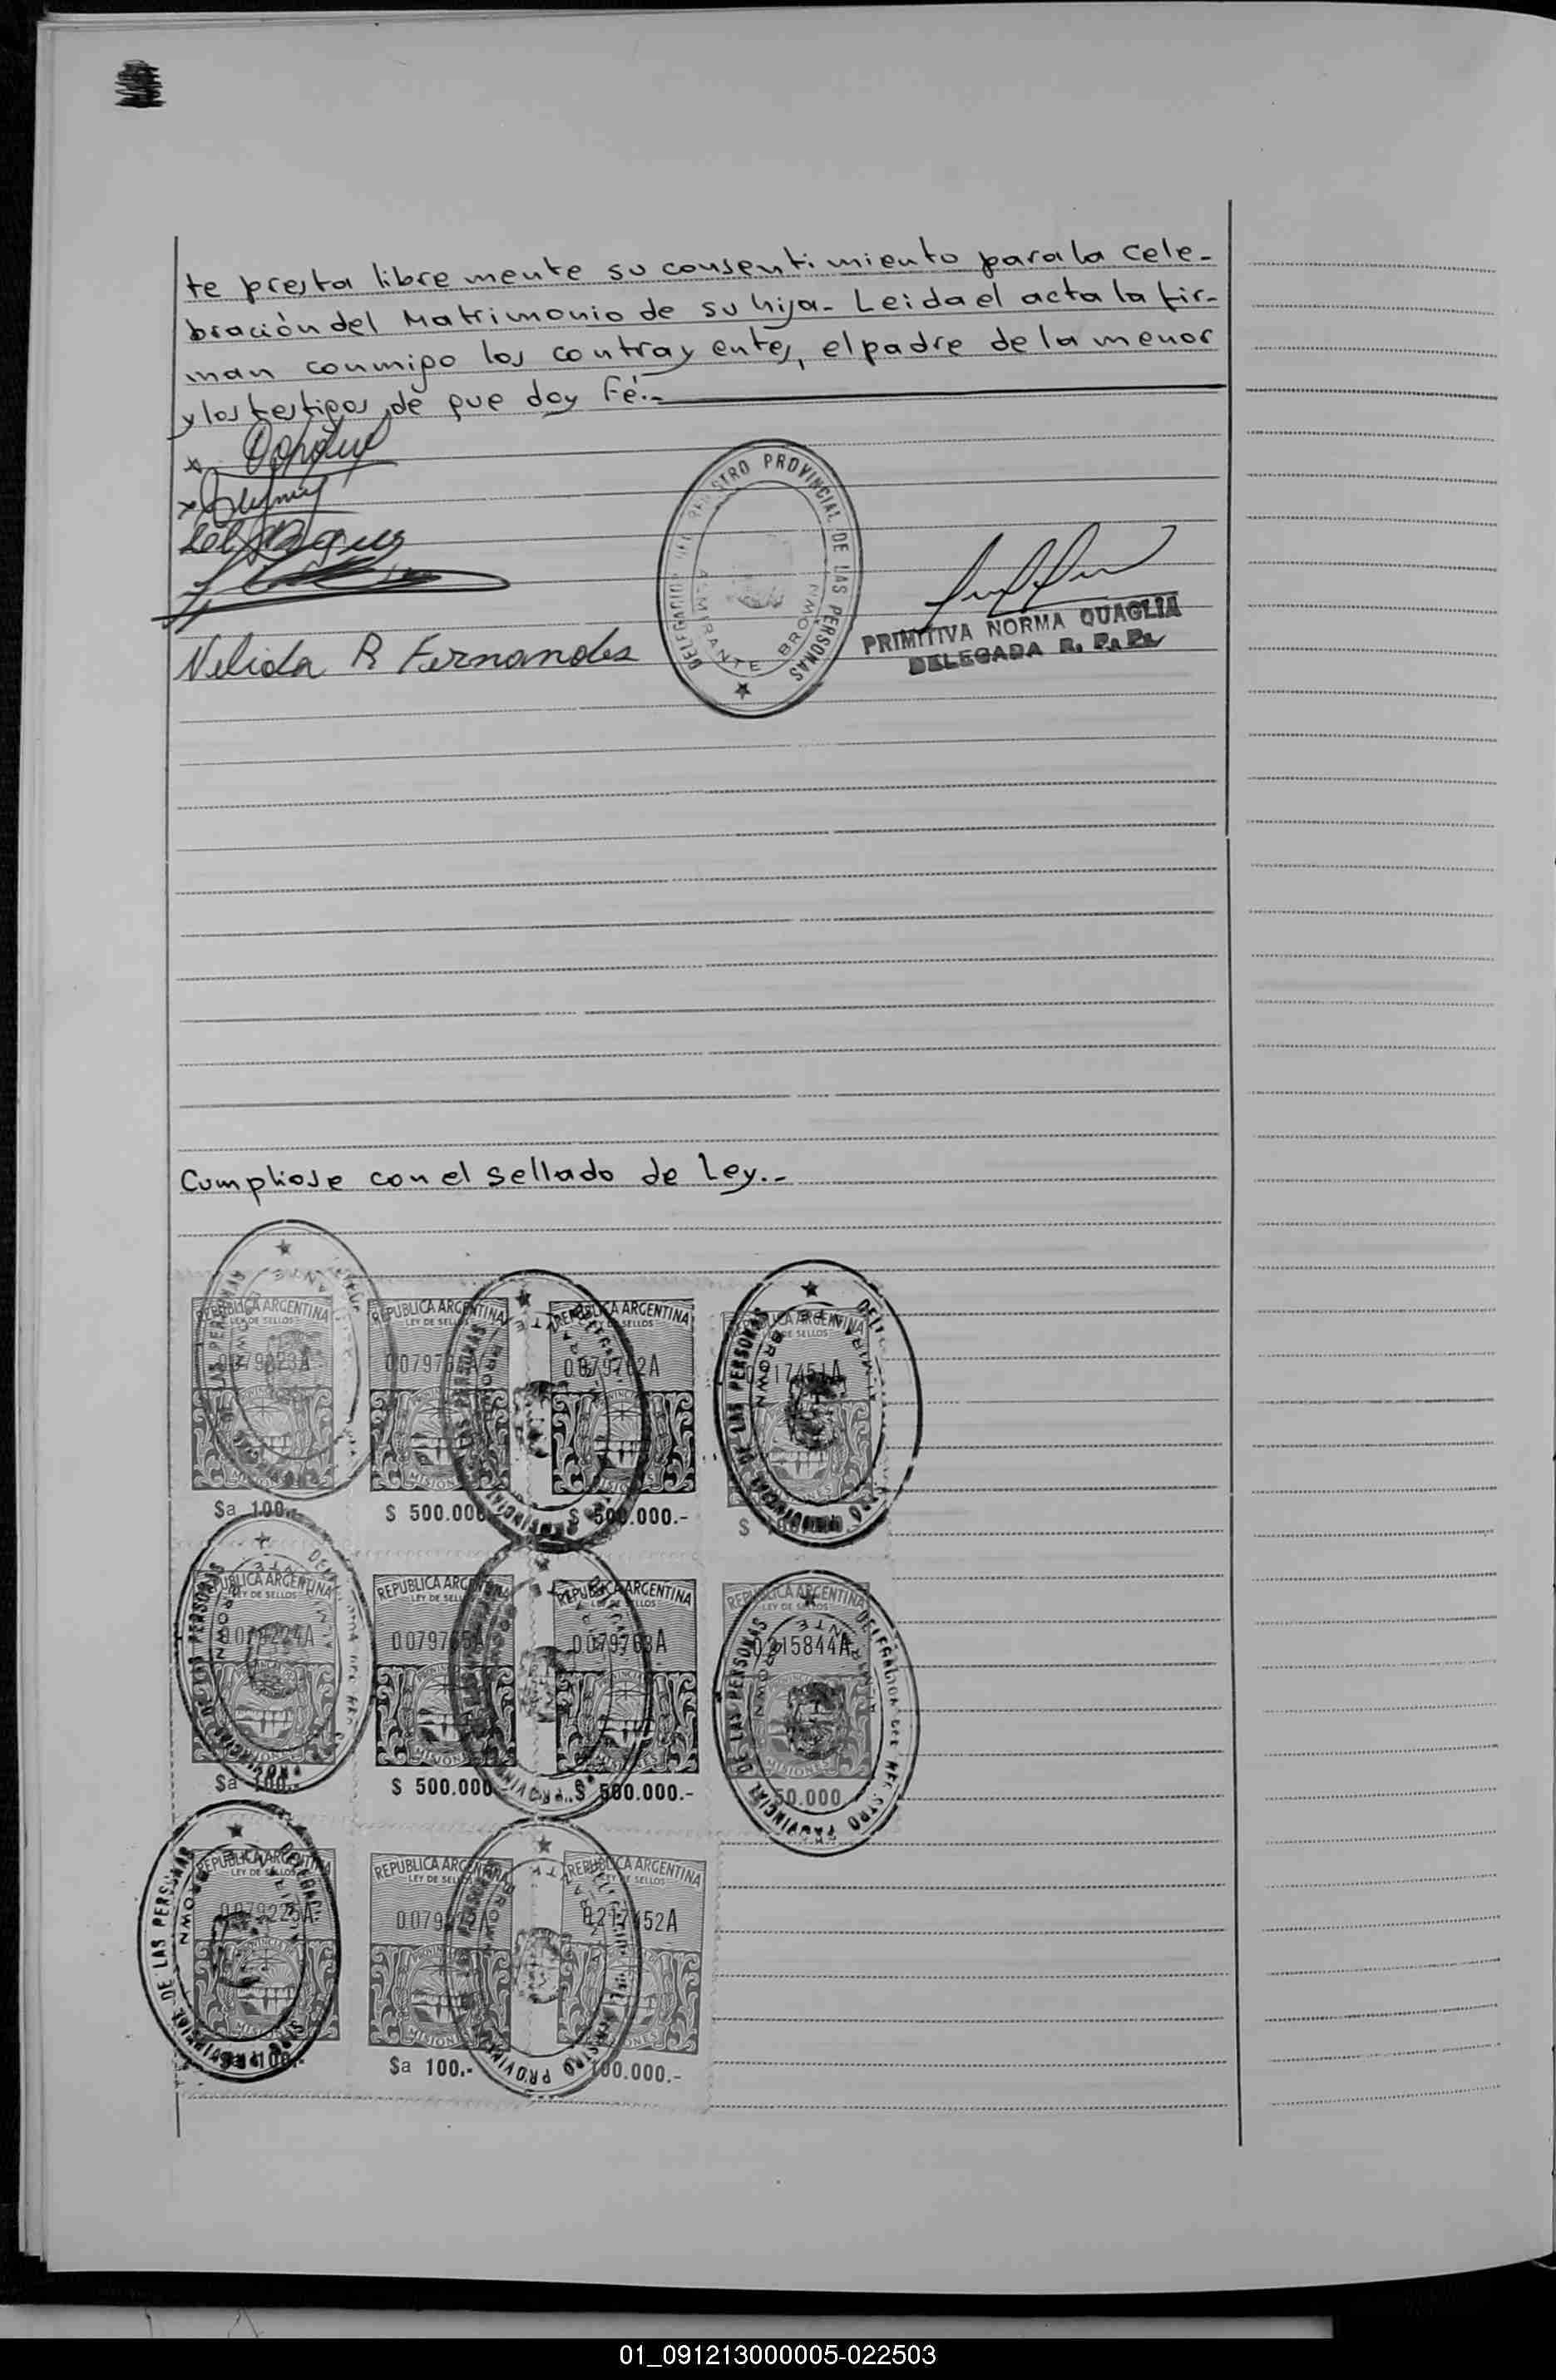 te presta libremente su consentimiento para la cele-
bración del Matrimonio de su hija. Leida el acta la fir-
man conmigo los contrayentes, el padre de la menor
y los testigos, de que doy Fé.-
Nelida R Fernandes
DELEGACION DEL REGISTRO PROVINCIAL DE LAS PERSONAS
ALMIRANTE BROWN
PRIMITIVA NORMA QUAGLIA
DELEGADA R. P. P.
Cumpliose con el sellado de Ley.-
REPUBLICA ARGENTINA REPUBLICA ARGENTINA REPUBLICA ARGENTINA REPUBLICA ARGENTINA
LEY DE SELLOS LEY DE SELLOS LEY DE SELLOS LEY DE SELLOS
0217451A
MISIONES MISIONES MISIONES MISIONES
$a 100.- $ 500.000 $ 500.000.- $
REPUBLICA ARGENTINA REPUBLICA ARGENTINA REPUBLICA ARGENTINA REPUBLICA ARGENTINA
LEY DE SELLOS LEY DE SELLOS LEY DE SELLOS LEY DE SELLOS
0079224A 0079763A 0215844A
MISIONES MISIONES MISIONES MISIONES
$a 100.- $ 500.000 $ 500.000.- 50.000
REPUBLICA ARGENTINA REPUBLICA ARGENTINA REPUBLICA ARGENTINA
LEY DE SELLOS LEY DE SELLOS LEY DE SELLOS
0079225A 0217452A
MISIONES MISIONES MISIONES
$a 100.- $a 100.- 100.000.-
01_091213000005-022503